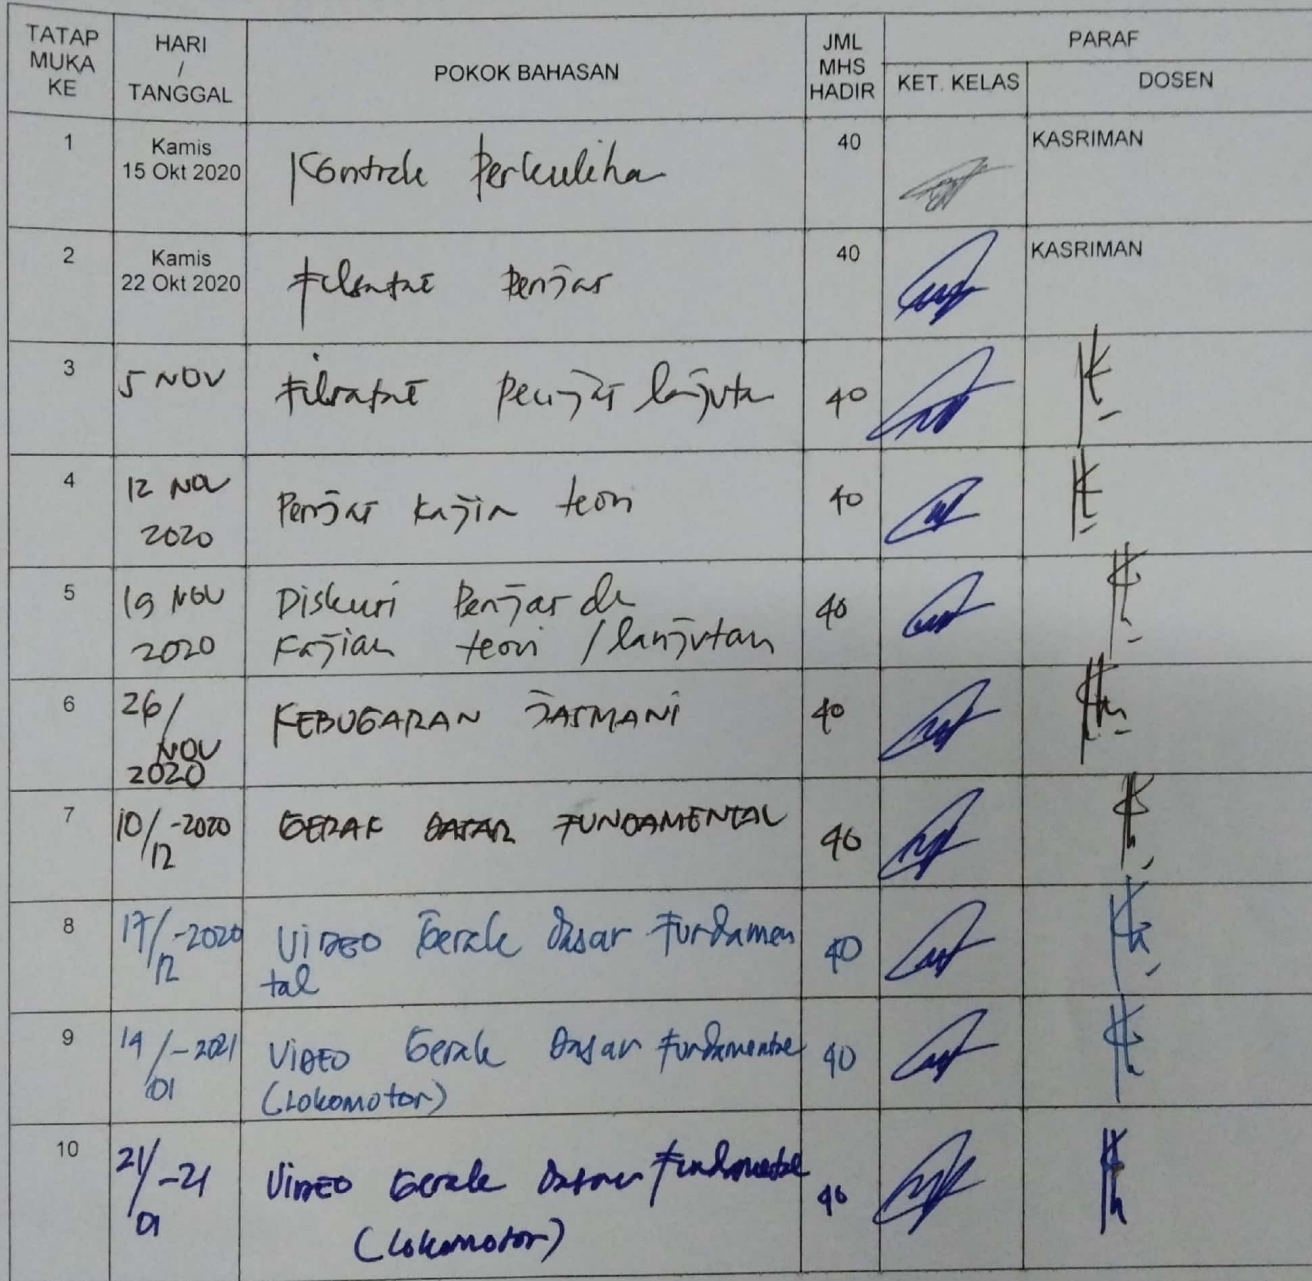 TATAP MUKA KE HARI / TANGGAL POKOK BAHASAN JML MHS HADIR PARAF
KET. KELAS DOSEN
1 Kamis 15 Okt 2020 Kontrak Perkuliha 40 KASRIMAN
2 Kamis 22 Okt 2020 Filsafat Penjas 40 KASRIMAN
3 5 NOV Filsafat Penjas lanjuta 40
4 12 NOV 2020 Penjas Kajin teori 40
5 19 NOV 2020 Diskusi Penjas da 40
Kajian teori / lanjutan
6 26/ NOV 2020 KEBUGARAN JASMANI 40
7 10/12-2020 GERAK DASAR FUNDAMENTAL 40
8 17/12-2020 ViDEO Gerak dasar Fundamen 40
tal
9 14/01-2021 ViDEO Gerak Dasar Fundamental 40
(Lokomotor)
10 21/01-21 ViDEO Gerak Dasar Fundamental 40
(Lokomotor)